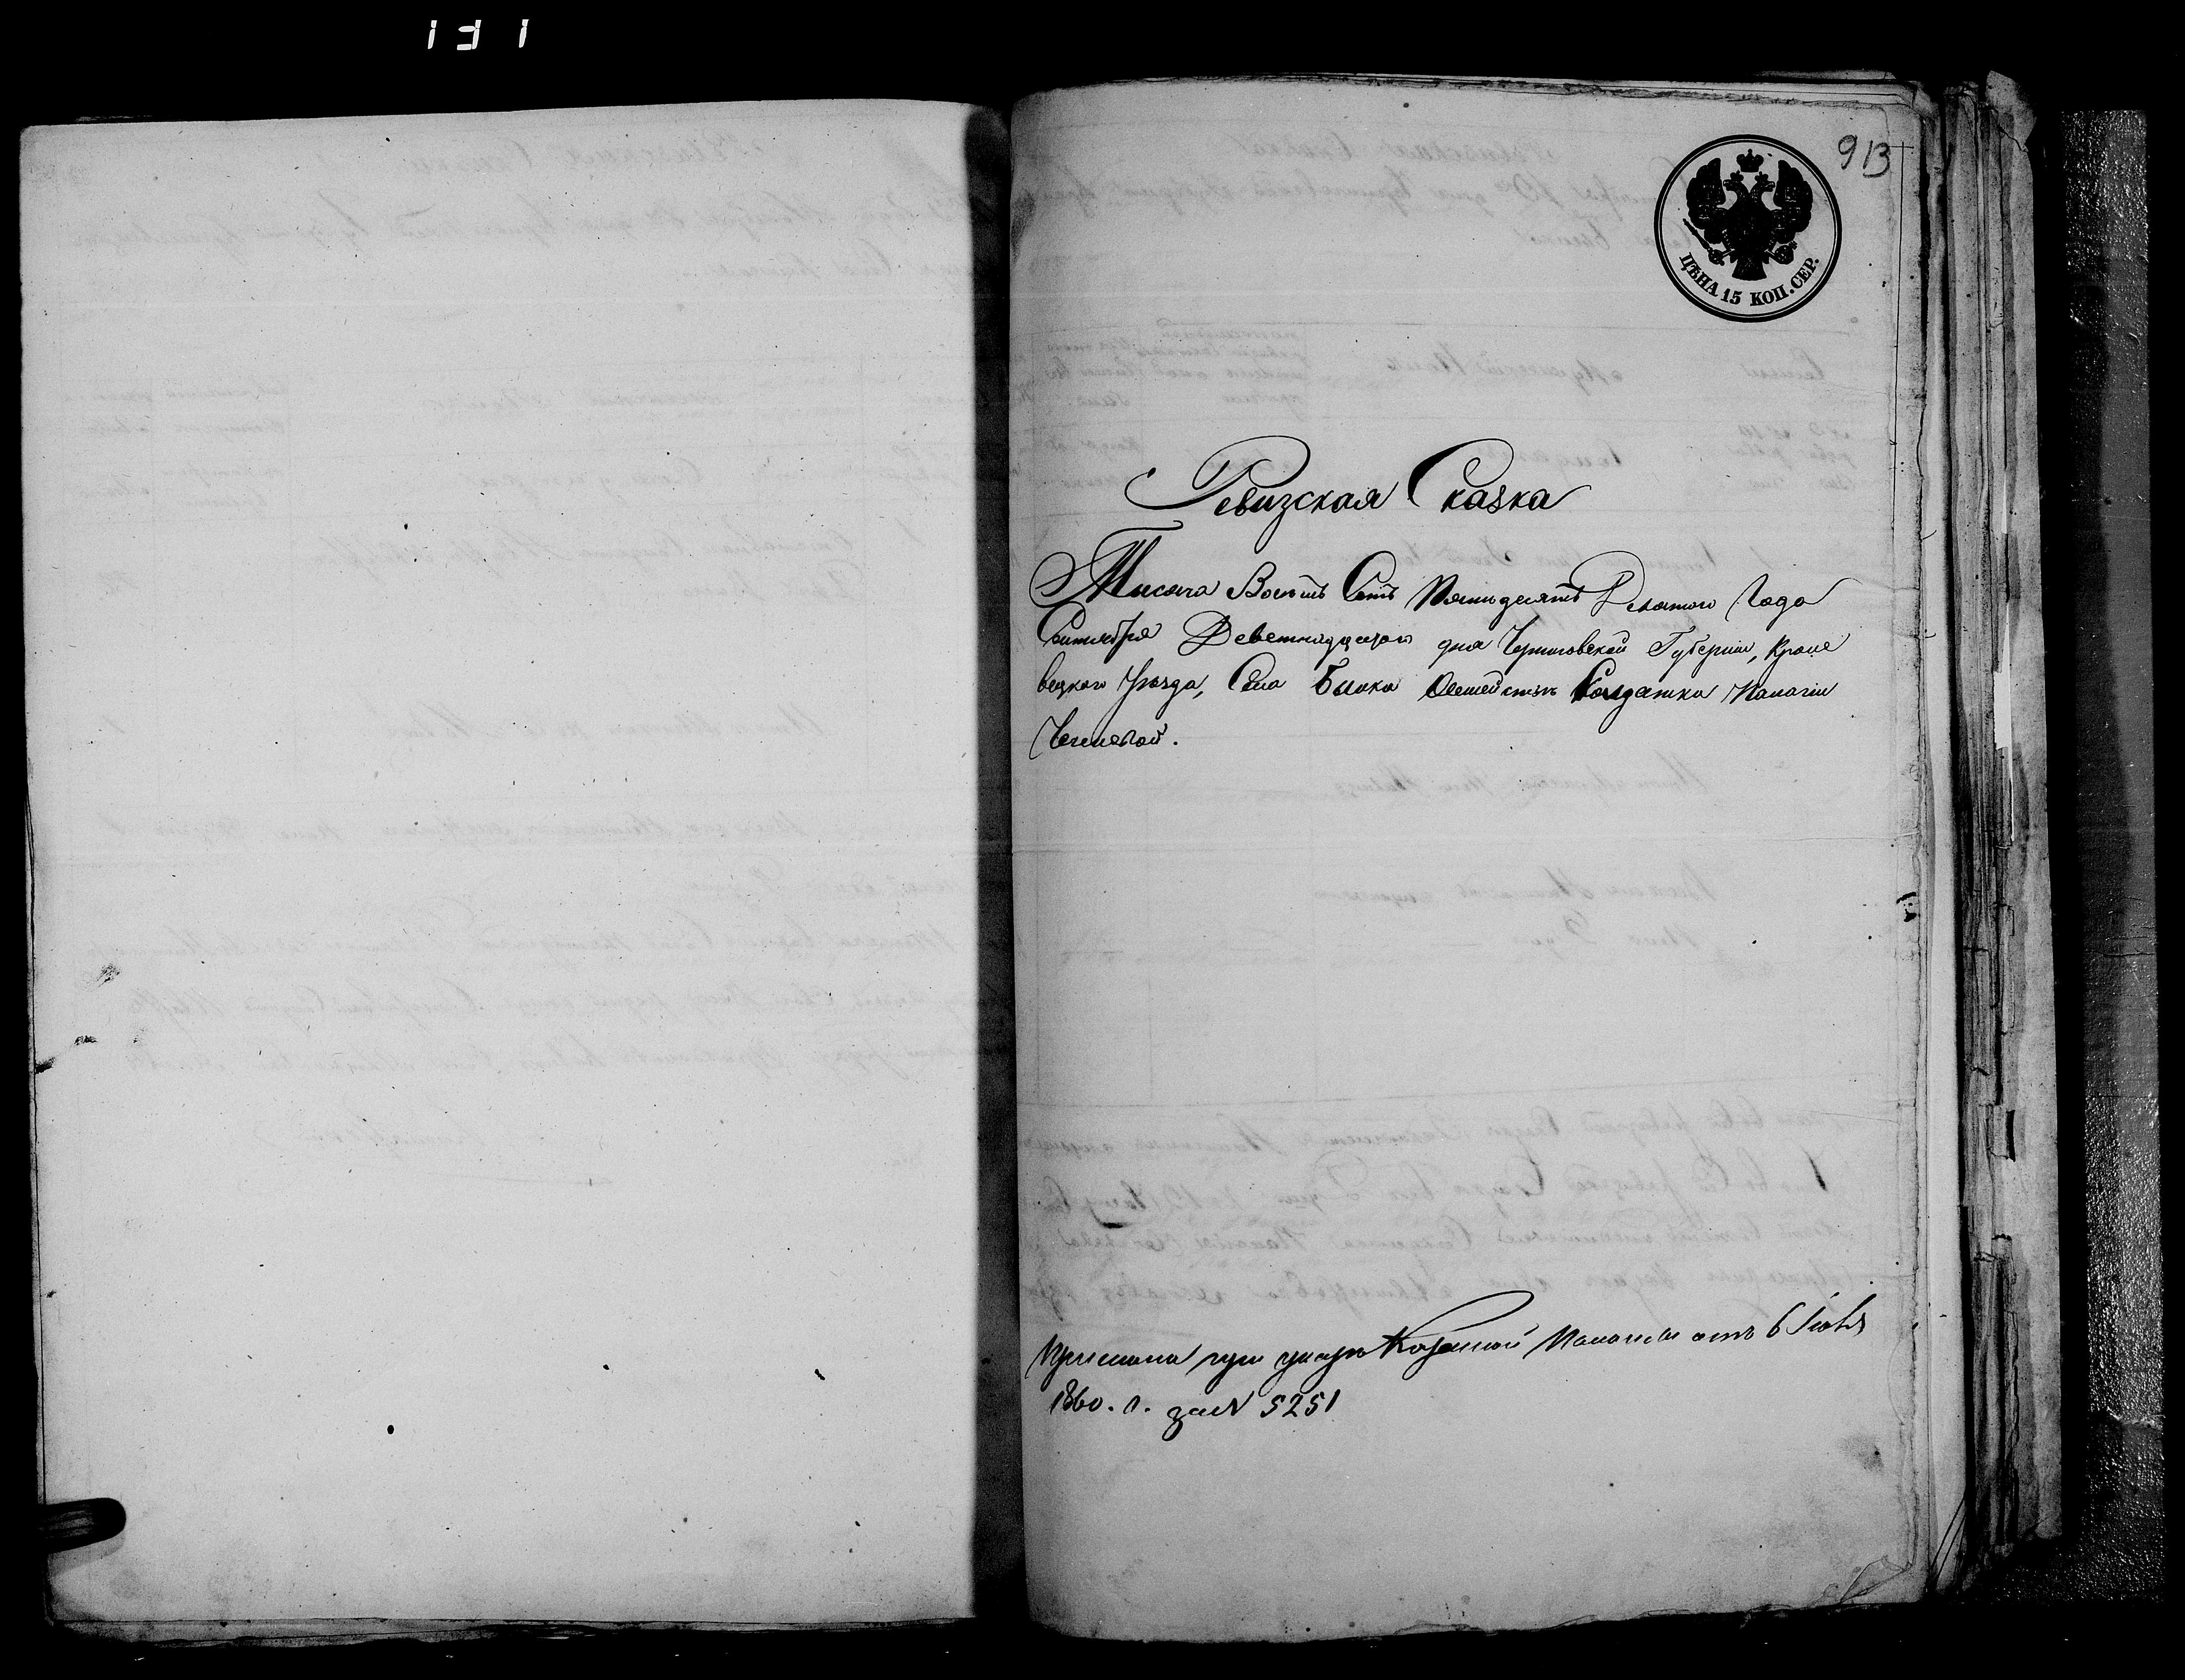 913
ЦѢНА 15 КОП. СЕР.
Ревизская Сказка
Тисяча Восѣмъ Сотъ Пятьдесятъ Девятого Года
Сентября Деветнадцатого дня Черниговской Губерніи, Кроле
вецкого Уѣзда, Села Быки Солдатки Палагіи
Принята при указѣ Казенной Палаты отъ 6 Іюля
1860. г. за № 5251